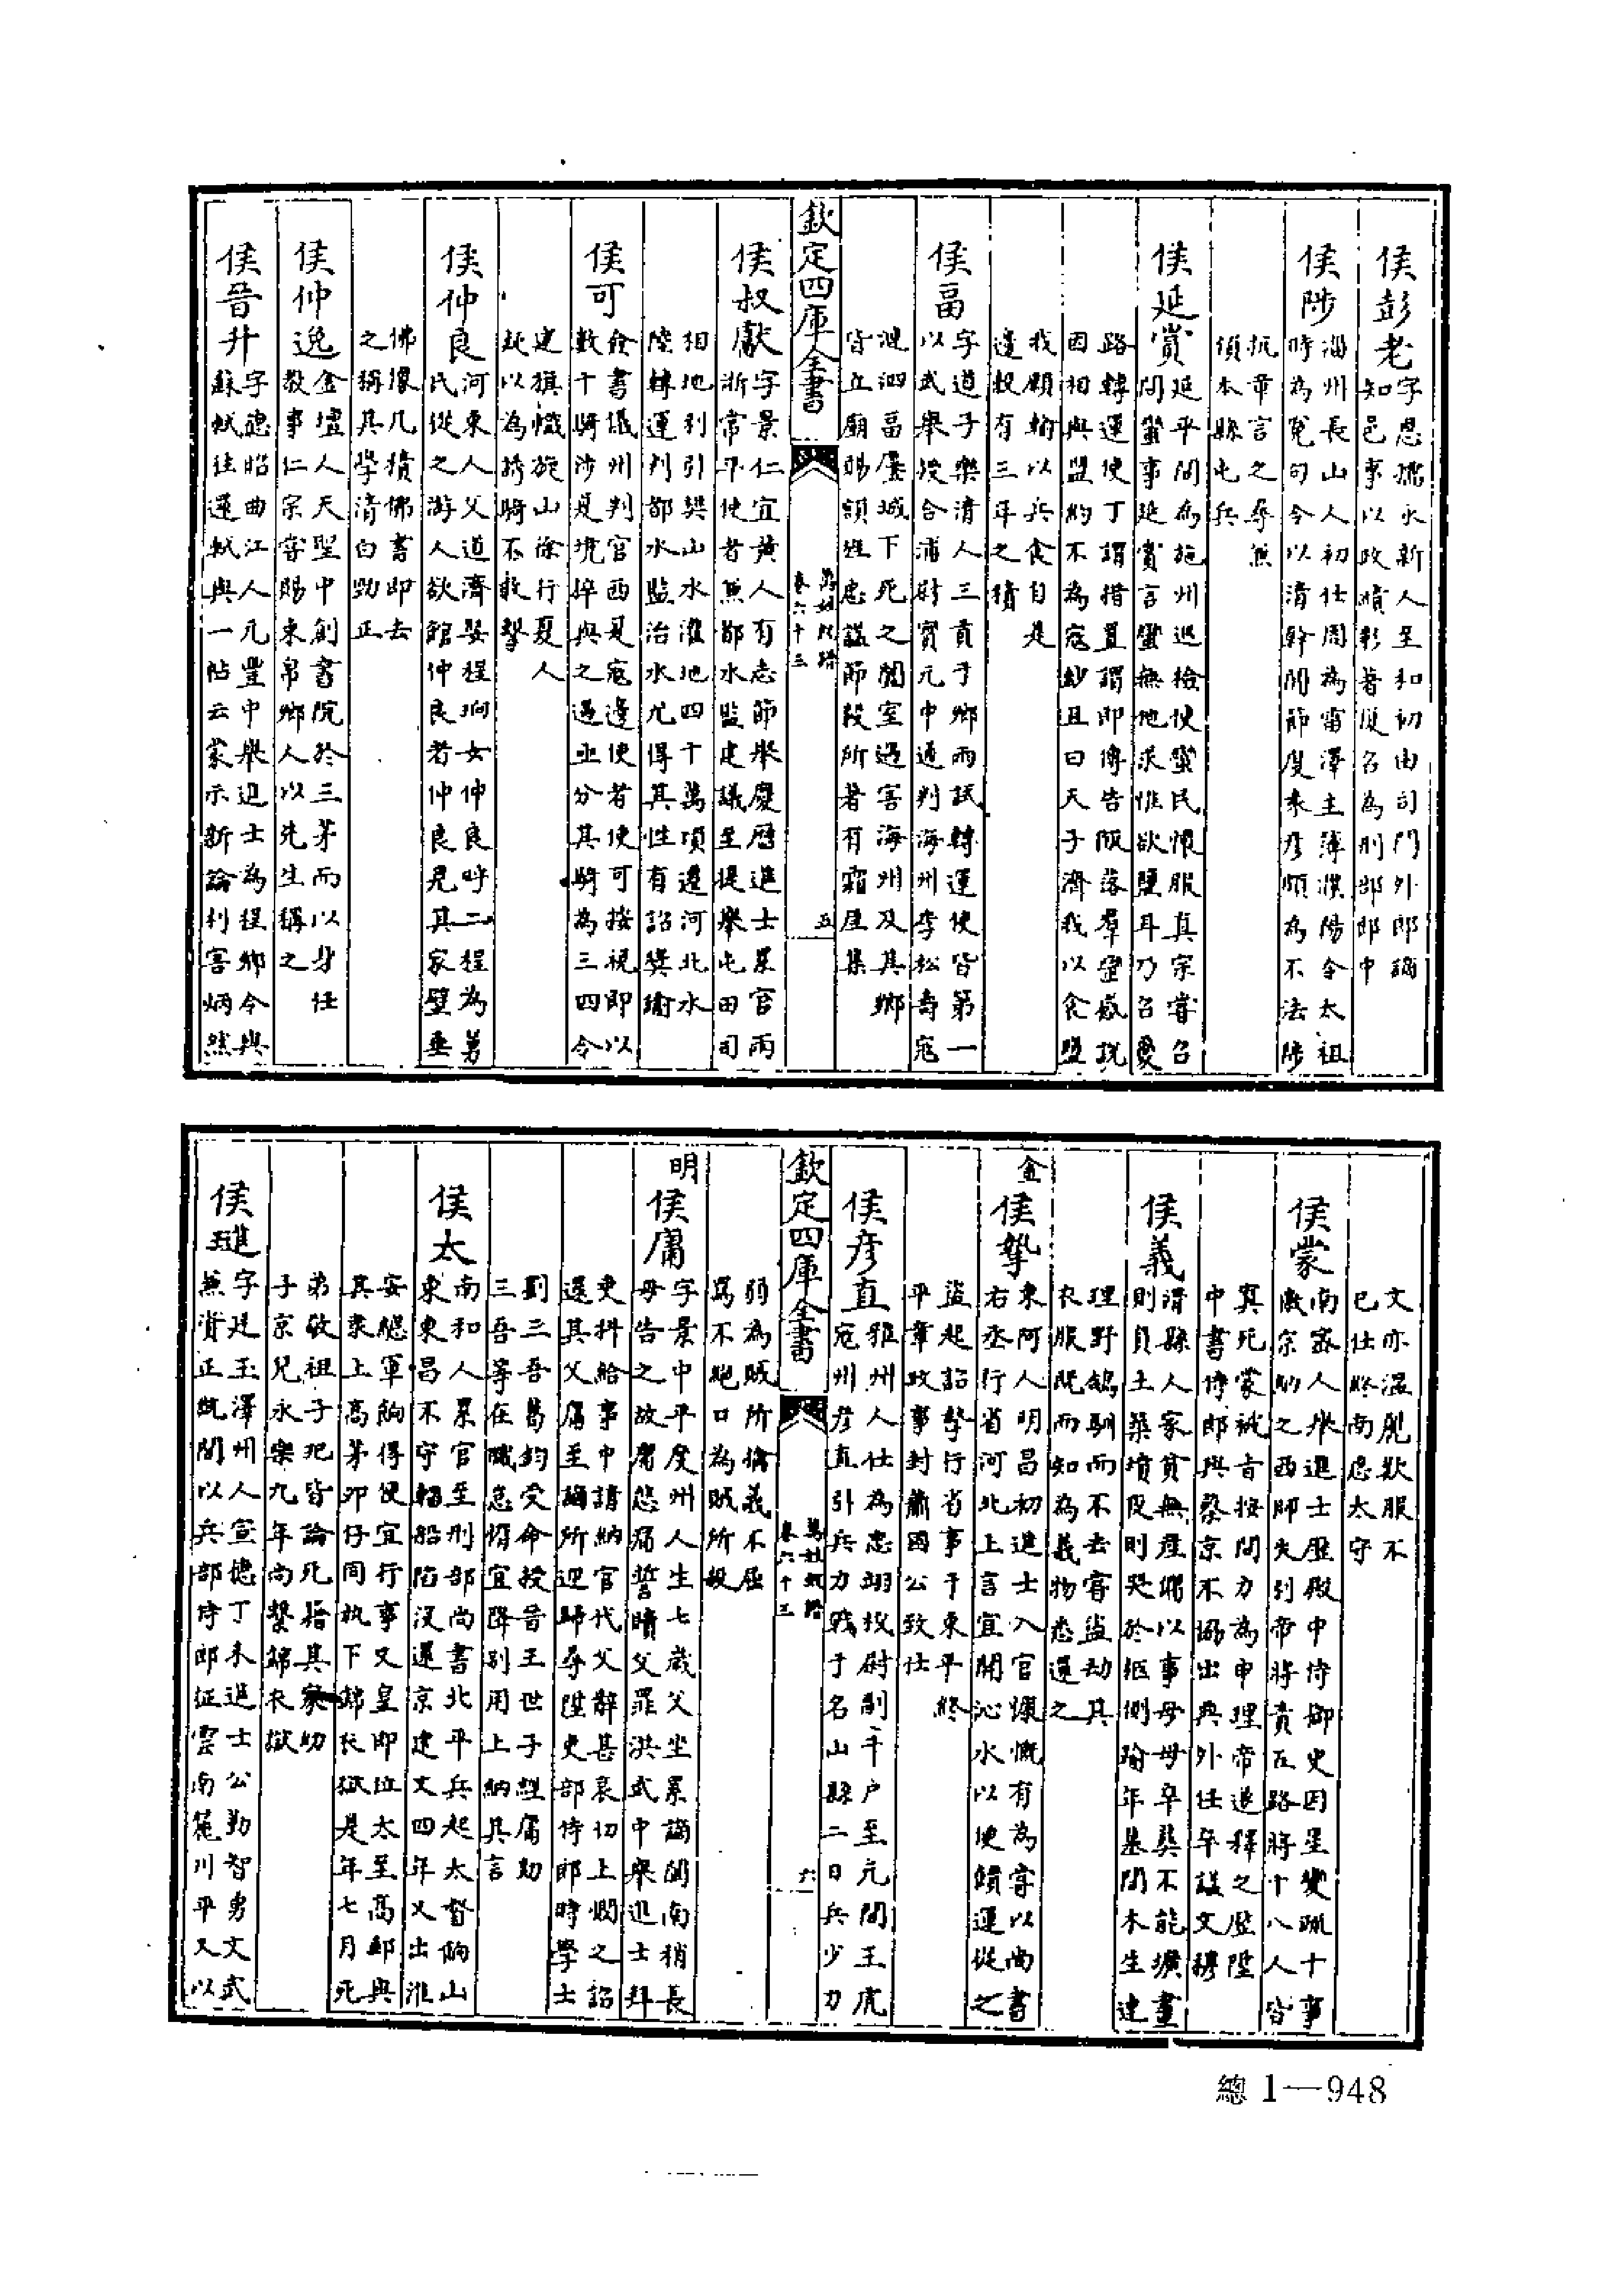 侯彭老字思孺永新人至和初由司門外郎謫
知邑事以政績彰著復召為刑部郎中
侯陟淄州長山人初仕周為雷澤主簿濮陽令太祖
時為冤句令以清幹聞節度袁彥頗為不法陟
抗章言之尋兼
偵本縣屯兵
侯延賞延平間為施州巡檢使蠻民懷服真宗嘗召
問蠻事延賞言蠻無他求惟欲鹽耳乃召夔
路轉運使丁謂措置謂即傳告陬落羣蠻感説
因相與盟約不為寇鈔且曰天子濟我以食鹽
我願輸以兵食自是
邊穀有三年之積
侯畐字道子樂清人三貢于鄉兩試轉運使皆第一
以武舉授合浦尉寶元中通判海州李松壽寇
漣泗畐屢城下死之闔室遇害海州及其鄉
皆立廟賜額旌忠諡節毅所著有霜厓集
欽定四庫全書
萬姓統譜
卷六十三
五
侯叔獻字景仁宜黄人有志節舉慶歷進士累官兩
浙常平使者兼都水監建議至提舉屯田司
相地利引樊山水淮地四十萬頃遷河北水
陸轉運判都水監治水尤得其性有詔奬諭
侯可僉書儀州判官西夏寇邊使者使可按視即以
數十騎涉夏境猝與之遇亟分其騎為三四令
建旗幟旋山徐行夏人
疑以為誘騎不敢擊
侯仲良河東人父道濟娶程珦女仲良呼二程為舅
氏從之游人欲館仲良者仲良見其家壁垂
佛像几積佛書即去
之稱其學清白勁正
侯仲逸金壇人天聖中創書院於三茅而以身任
教事仁宗嘗賜束帛鄉人以先生稱之
侯晉升字德昭曲江人元豐中舉迎士為程鄉令與
蘇軾往還軾與一帖云蒙示新論利害炳然
文亦溫麗歎服不
已仕終南恩太守
侯蒙南密人舉進士歷殿中侍御史因星變疏十事
徽宗納之西師失利帝將責五路將十八人皆
寘死蒙被旨按問力為申理帝遂釋之歷陞
中書侍郎與蔡京不協出典外任卒諡文穆
侯義清縣人家貧無產傭以事母母卒葬不能壙晝
則負土築墳夜則哭於柩側踰年墓間木生連
理野鴿馴而不去嘗盜劫其
衣服既而知為義物悉還之
金
侯摯東阿人明昌初進士入官慷慨有為嘗以尚書
右丞行省河北上言宜開沁水以便饋運從之
盜起詔摯行省事于東平終
平章政事封蕭國公致仕
侯彦直雅州人仕為忠翊校尉制千戶至元間王虎
寇州彦直引兵力戰于名山縣二日兵少力
欽定四庫全書
萬姓統譜
卷六十三
六
弱為賊所擒義不屈
罵不絶口為賊所殺
明
侯庸字景中平度州人生七歲父坐累謫閩南稍長
母告之故庸悲痛誓贖父罪洪武中舉進士拜
吏科給事中請納官代父辭甚哀切上憫之詔
還其父庸至謫所迎歸尋陞吏部侍郎時學士
劉三吾葛鈞受命授晉王世子經庸劾
三吾等在職怠惰宜降別用上納其言
侯太南和人累官至刑部尚書北平兵起太督餉山
東東昌不守輜船陷沒還京建文四年又出淮
安總軍餉得便宜行事文皇即位太至高郵與
其隶上高茅卯仔同执下錦衣獄是年七月死
弟敬祖子玘皆論死籍其家幼
子京兒永樂九年尚繫錦衣獄
侯璡字廷玉澤州人宣德丁未進士公勤智勇文武
兼資正統間以兵部侍郎征雲南麓川平又以
總 1—948